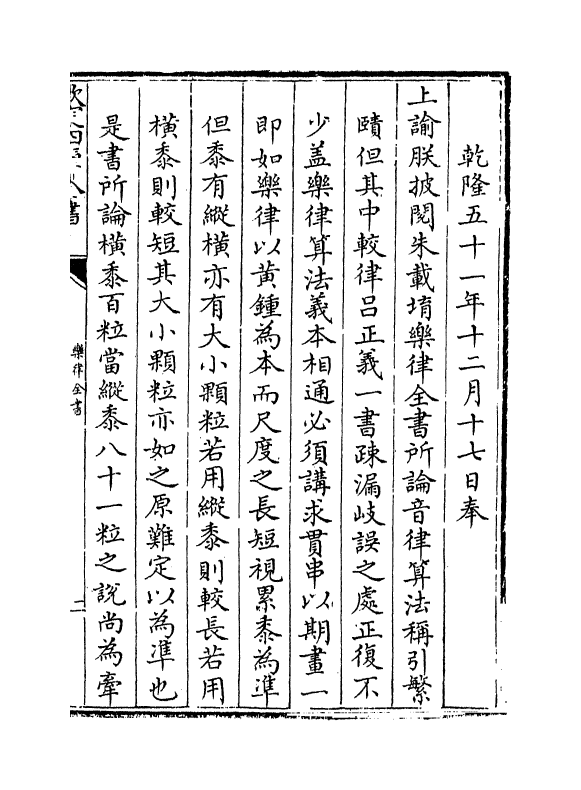 乾隆五十一年十二月十七日奉
上諭朕披閱朱載堉樂律全書所論音律算法稱引繁
賾但其中較律呂正義一書疎漏歧誤之處正復不
少盖樂律算法義本相通必須講求貫串以期畫一
即如樂律以黄鍾為本而尺度之長短視累黍為準
但黍有縱橫亦有大小顆粒若用縱黍則較長若用
橫黍則較短其大小顆粒亦如之原難定以為準也
是書所論橫黍百粒當縱黍八十一粒之說尚為牽
欽定四庫全書
樂律全書
二